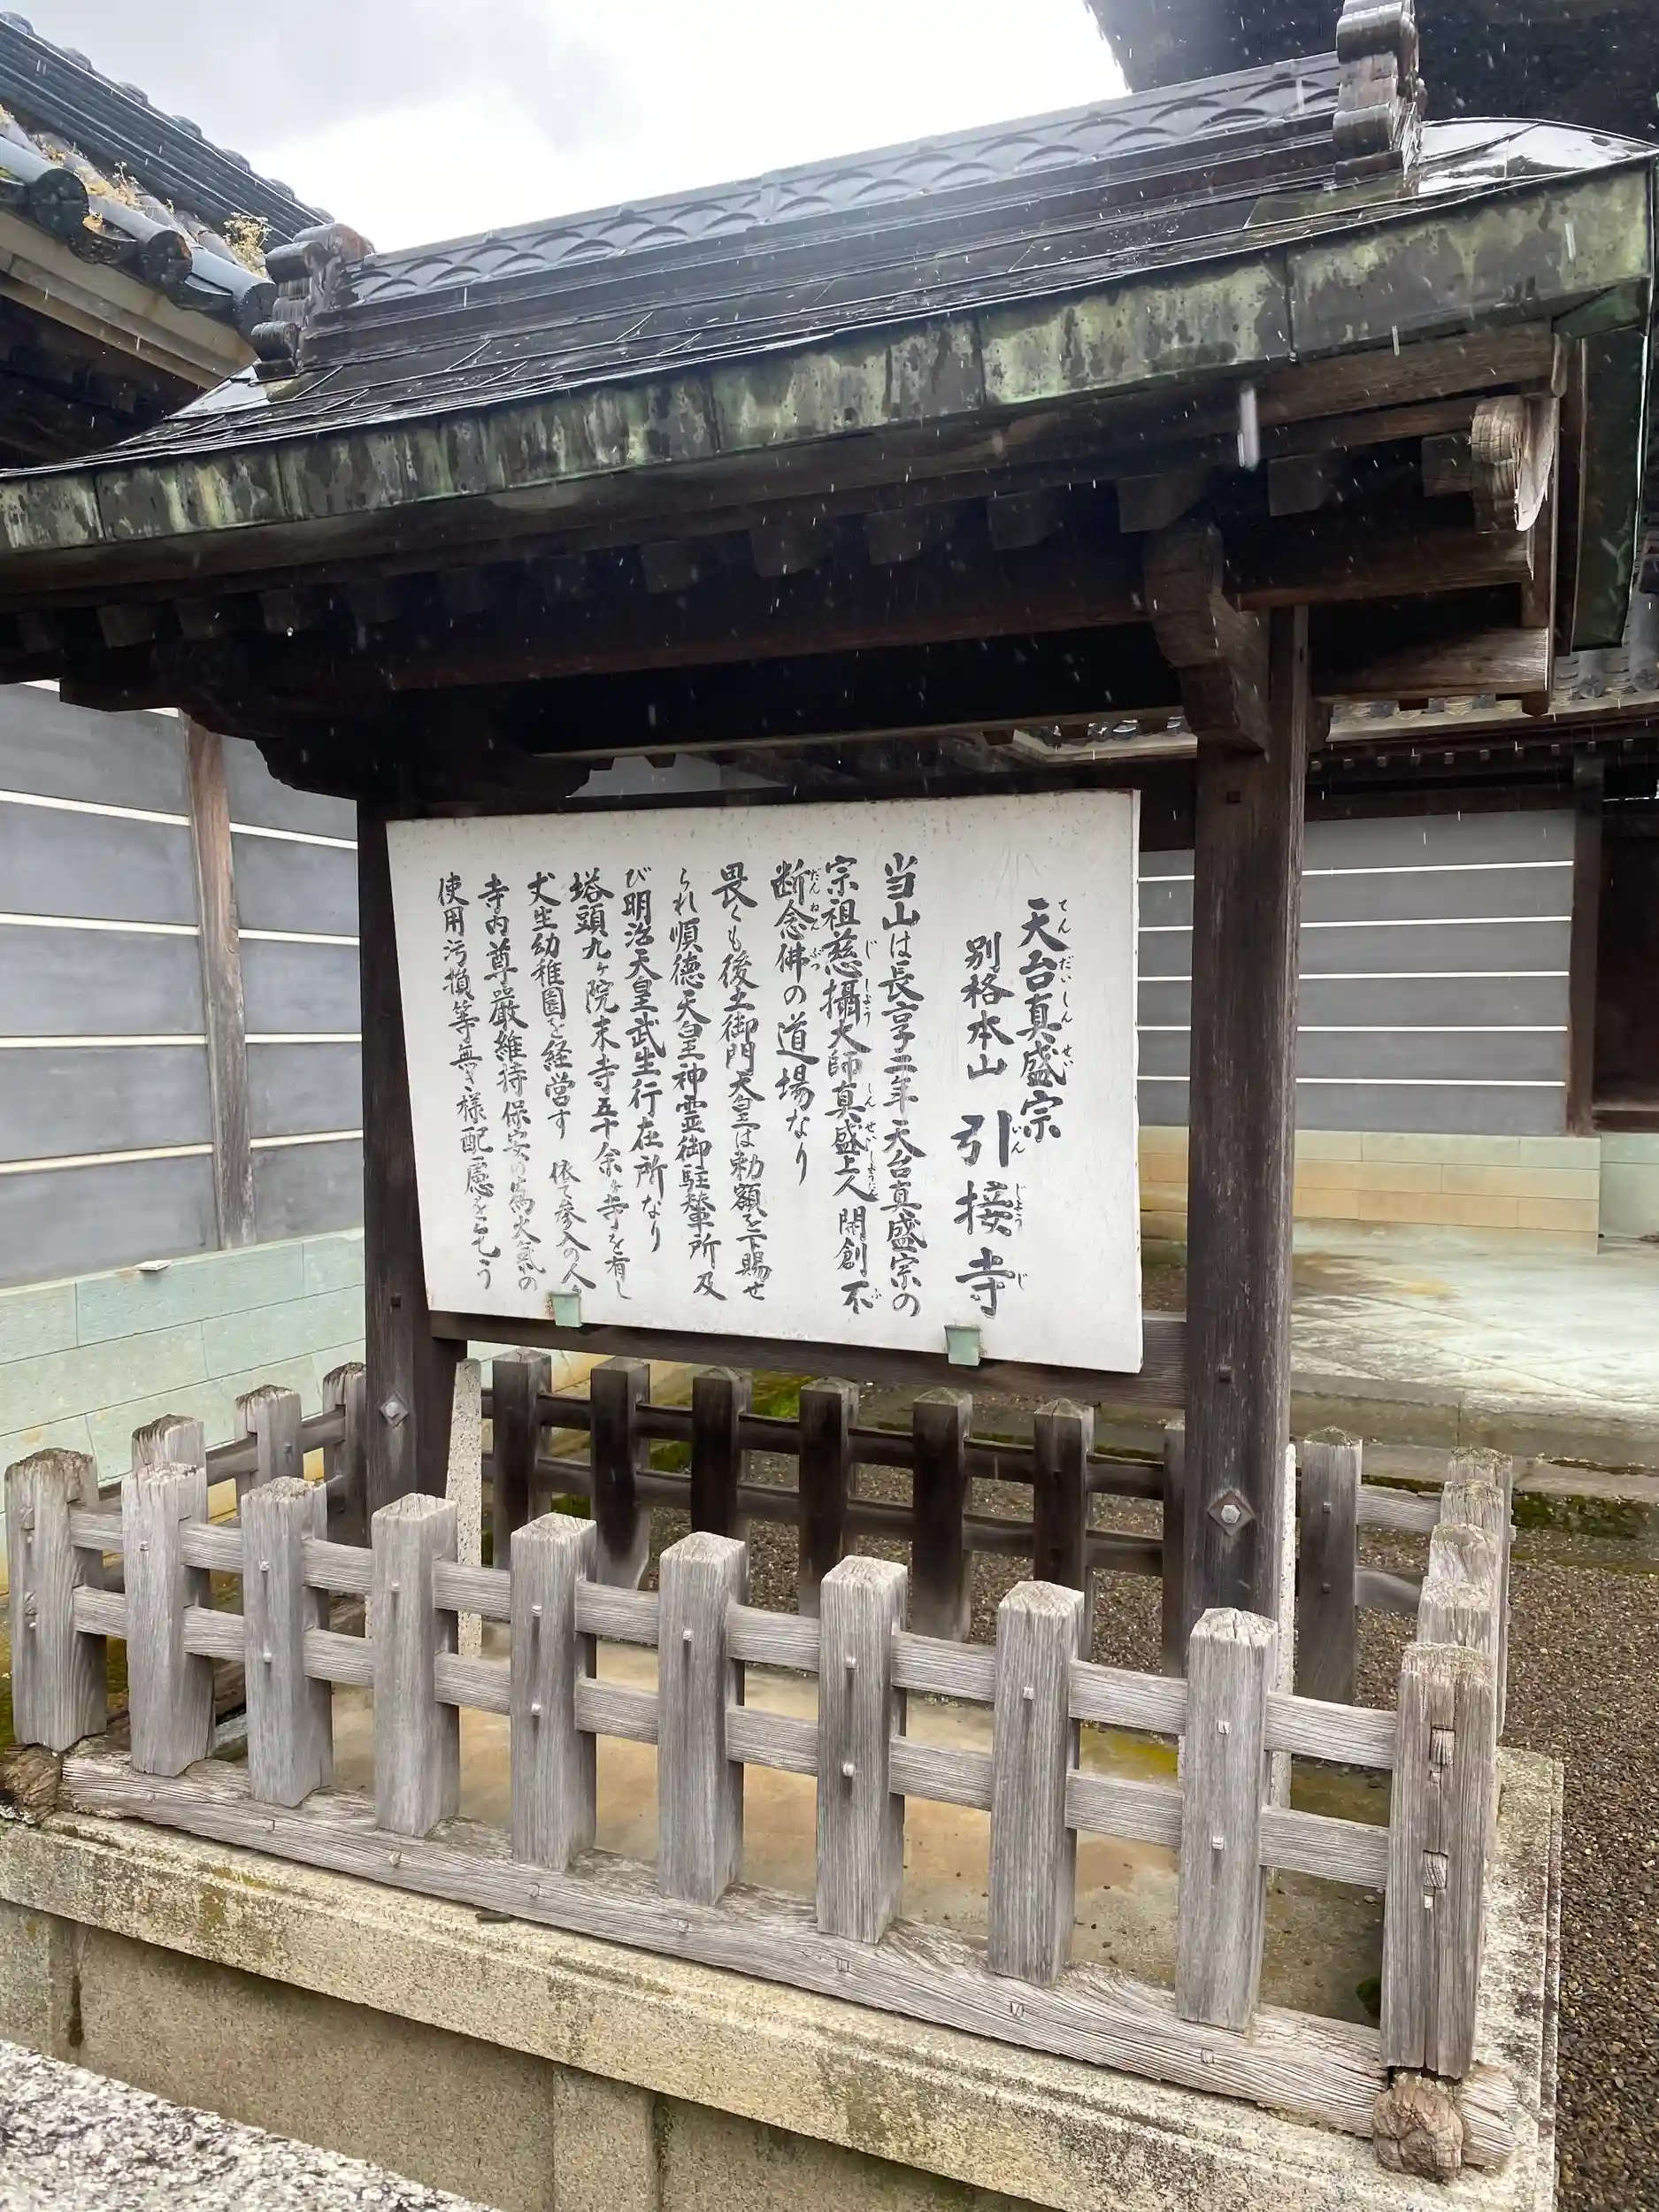 天台真盛宗
別格本山 引接寺
当山は長享二年天台真盛宗の
宗祖慈攝大師真盛上人開創不
断念佛の道場なり
畏くも後土御門天皇は勅額を下賜せ
られ順徳天皇神霊御駐輦所及
び明治天皇武生行在所なり
塔頭九ヶ院末寺五十余ヶ寺を有し
丈生幼稚園を経営す 依て参入の人
寺内尊嚴維持保安の為火氣の
使用汚損等無き様配慮を乞う